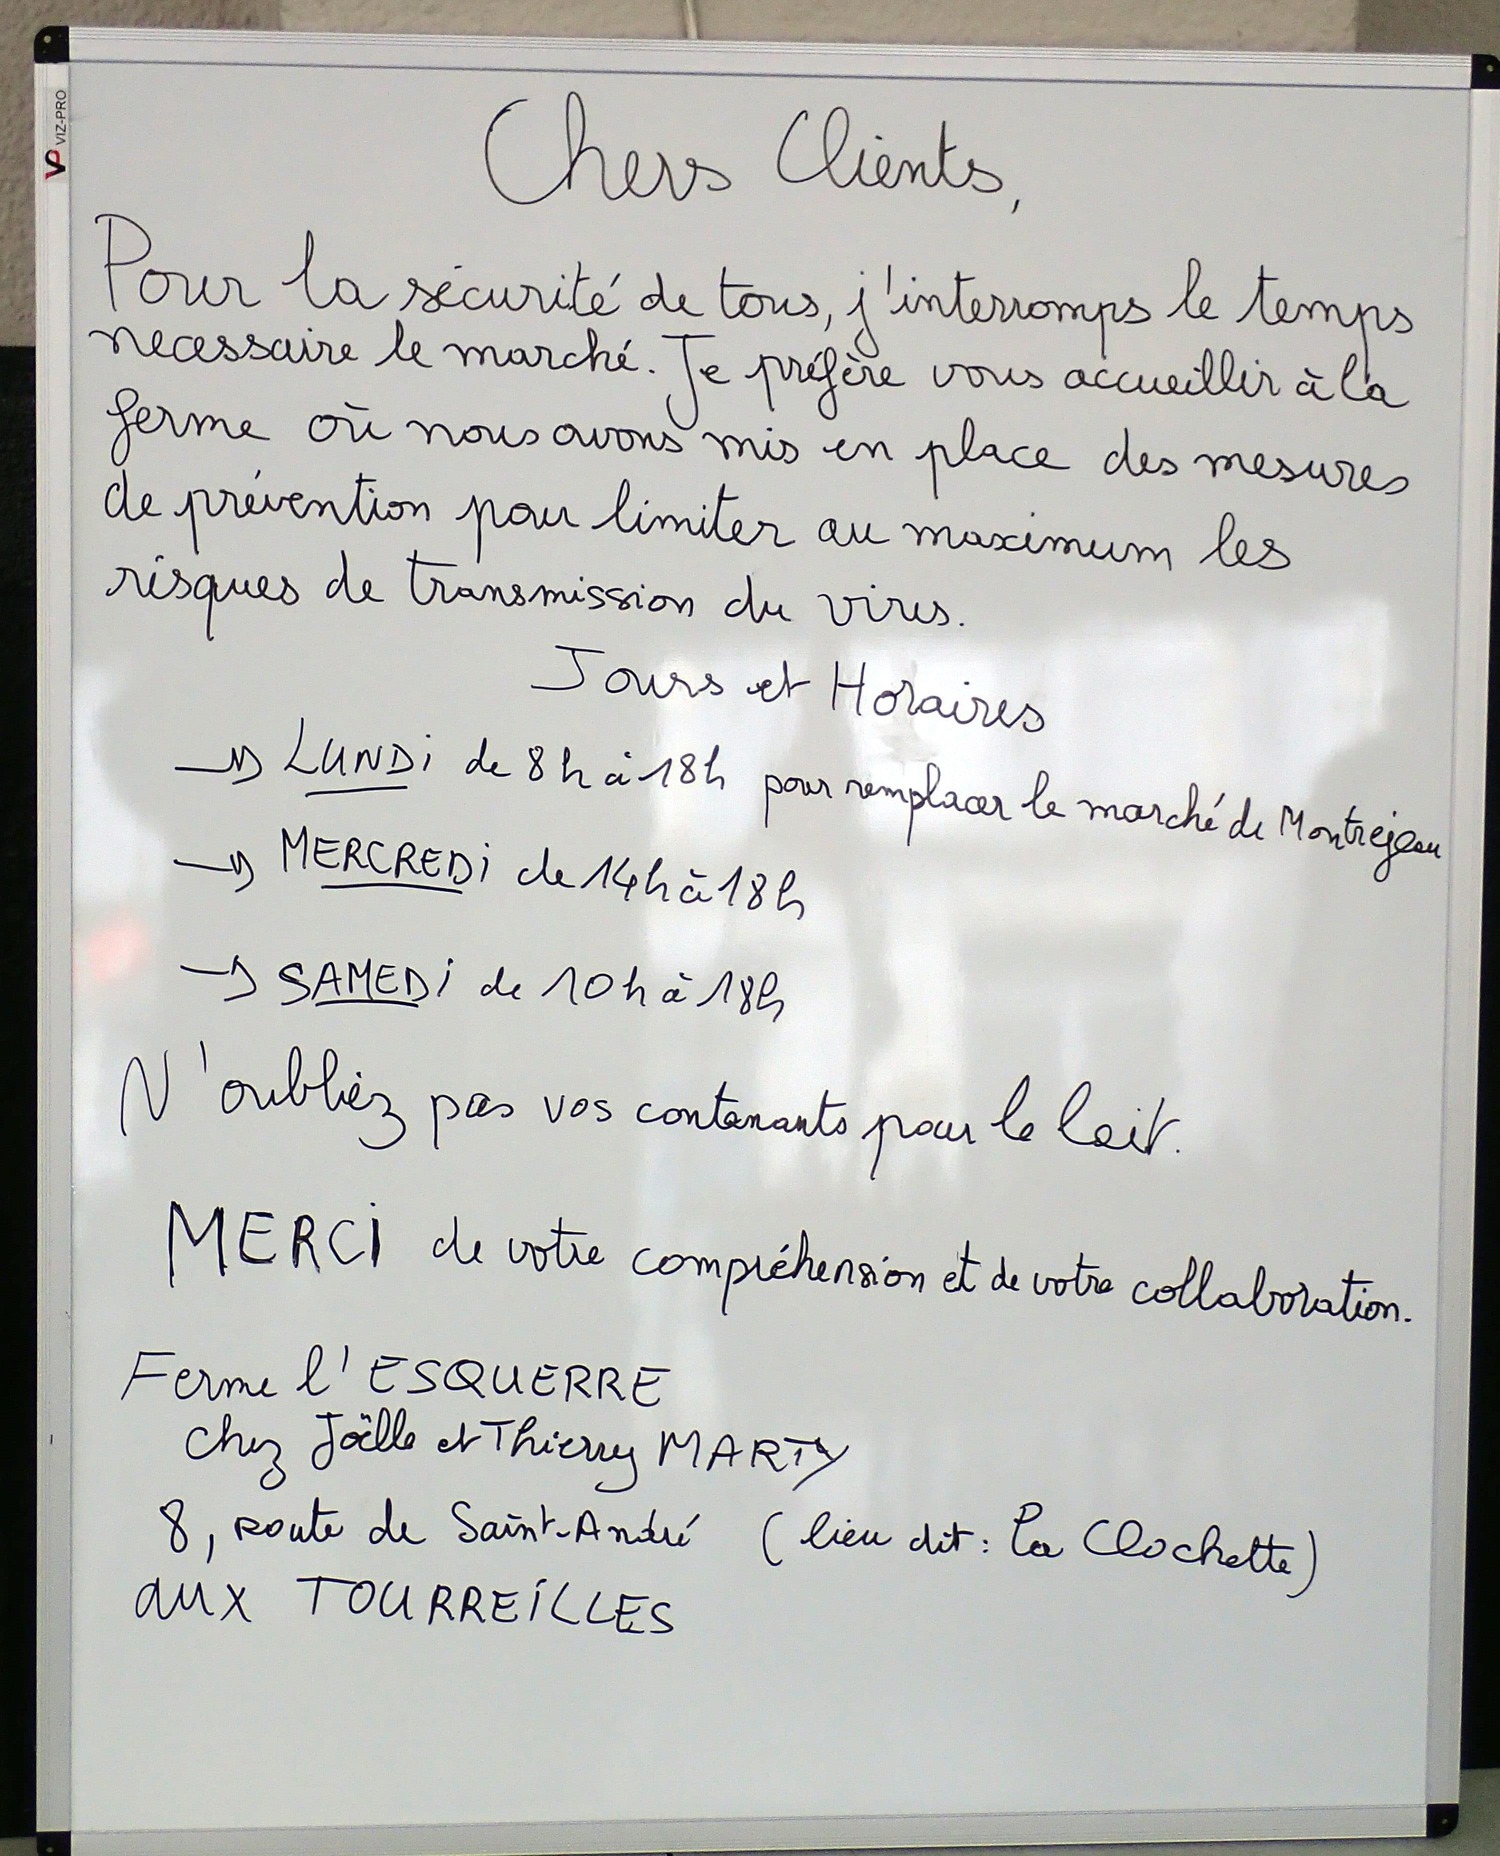 VP VIZ-PRO
Chers Clients,
Pour la sécurité de tous, j'interromps le temps
necessaire le marché. Je préfère vous accueillir à la
ferme où nous avons mis en place des mesures
de prévention pour limiter au maximum les
risques de transmission du virus.
Jours et Horaires
→ LUNDi de 8h à 18h pour remplacer le marché de Montrejeau
→ MERCREDi de 14h à 18h
→ SAMEDi de 10h à 18h
N'oubliez pas vos contenants pour le lait.
MERCi de votre compréhension et de votre collaboration.
Ferme l'ESQUERRE
chez Joëlle et Thierry MARTY
8, route de Saint-André (lieu dit : La Clochette)
aux TOURREiLLES